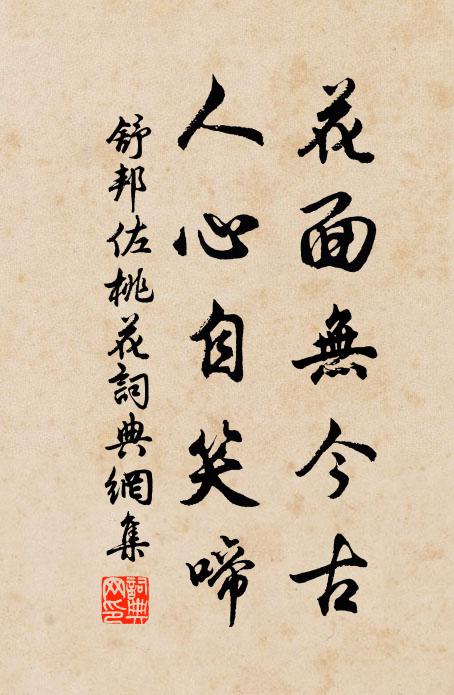 花面無今古
人心自笑啼
舒邦佐桃花詞典網集
詞典網印